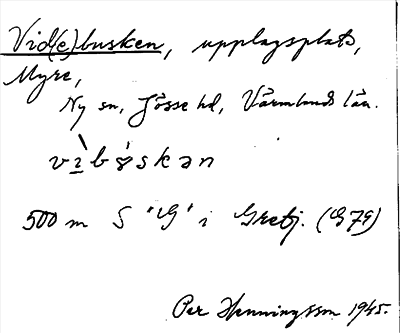 Vid(e)busken, upplagsplats,
Myre,
Ny sn, Jösse hd, Värmlands län.
vìbùskən
500 m S "G" i Gretj. (G79)
Per Henningsson 1945.